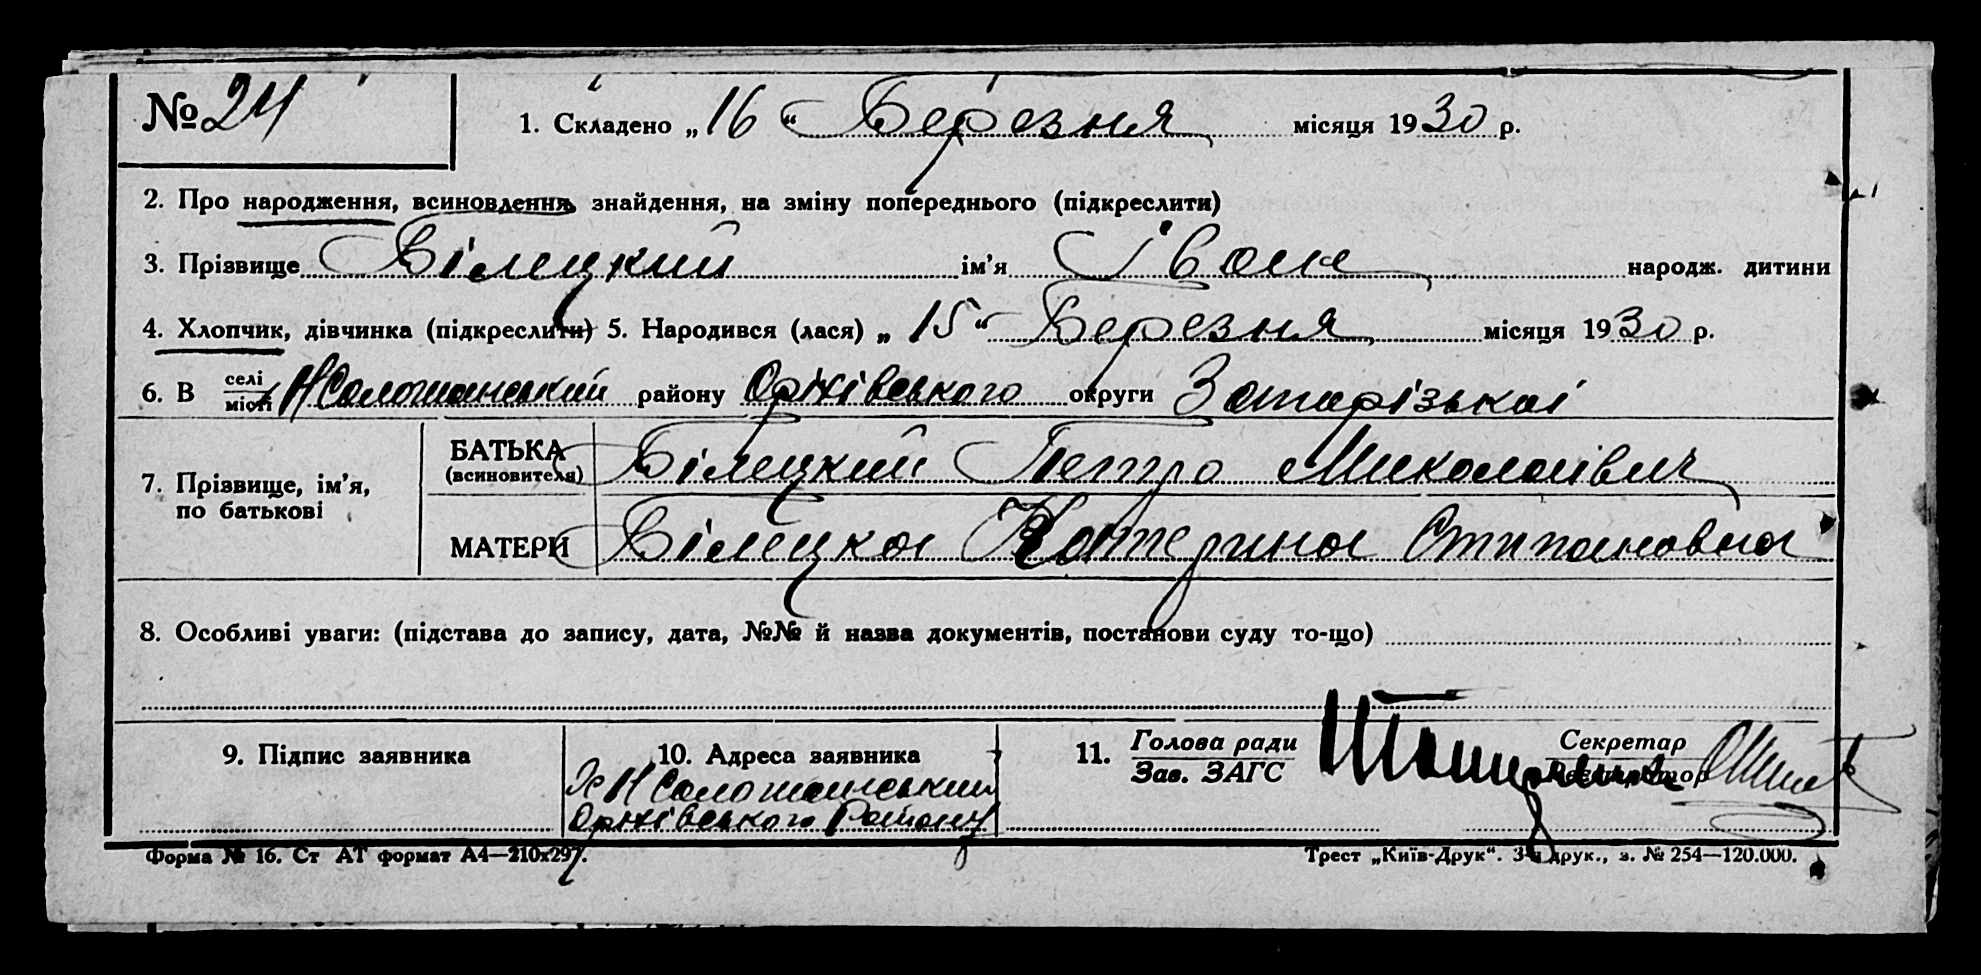 № 24
1. Складено „ 16 “ Березня місяця 1930 р.
2. Про народження, всиновлення, знайдення, на зміну попереднього (підкреслити)
3. Прізвище Білецкий ім’я Іван народж. дитини
4. Хлопчик, дівчинка (підкреслити) 5. Народився (лася) „ 15 “ Березня місяця 1930 р.
6. В селі місті району Оріхівського округи Запорізькаі
7. Прізвище, ім’я, по батькові
БАТЬКА (всиновителя) Білецкий Петро Миколаівич
МАТЕРИ Білецка Катерина Стипановна
8. Особливі уваги: (підстава до запису, дата, №№ й назва документів, постанови суду то-що)
9. Підпис заявника
10. Адреса заявника
Оріхівського Району
11. Голова ради
Зав. ЗАГС
Секретар
Реєстратор
Форма № 16. Ст АТ формат А4—210х297.
Трест „Київ-Друк“. 3-я друк., з. № 254—120.000.